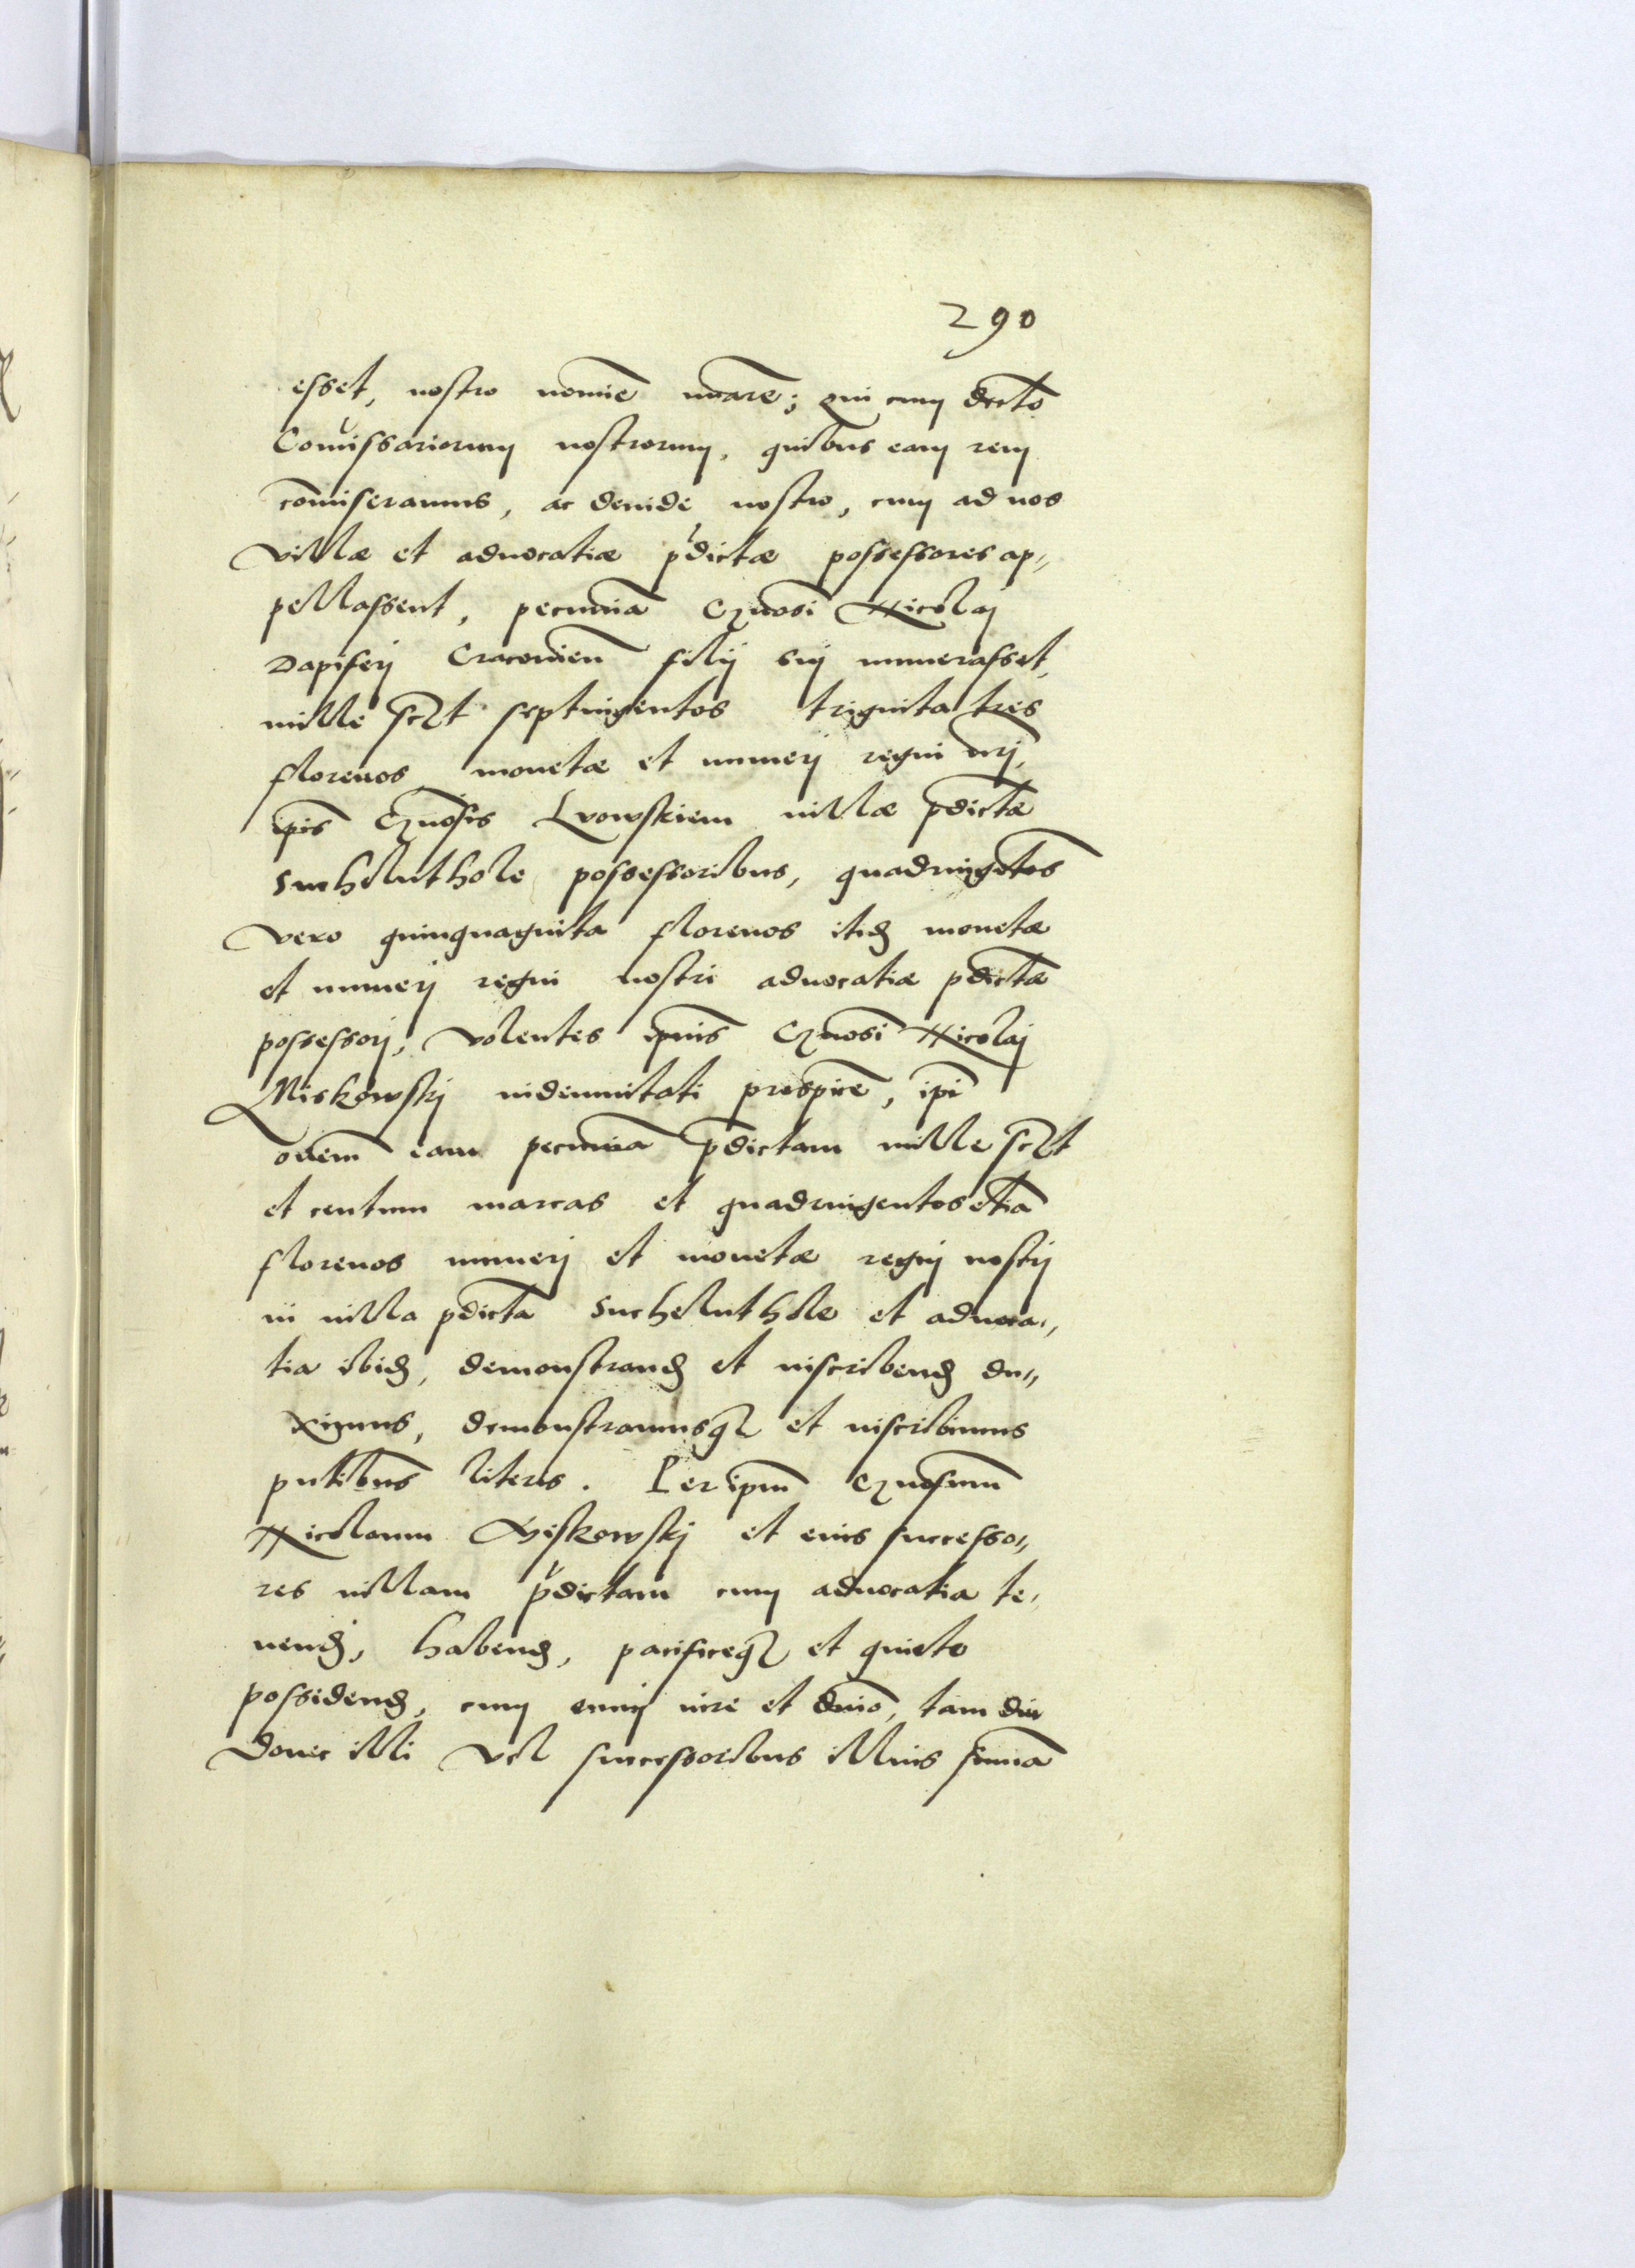 290
esset, nostro nomīe nūare; qui cum decto
Com̄issariorum nostrorum, quibus eam rem
com̄iseramus, ac deinde nostro, cum ad nos
villæ et advocatiæ p̄dictæ possessores ap„
pellassent, pecuniā Gn̄osi Nicolaj
Dapiferj Cracovien̄ filij suj numerasset,
mille scꝫt septingentos triginta tres
florenos monetæ et numerj regni nrj̄,
ip̄is Gn̄osis Lvowskiem villæ p̄dictæ
Sucheluthole possessoribus, quadringētos
vero quinquaginta florenos itid monetæ
et numerj regni nostri advocatiæ p̄dictæ
possessorj, volentes ip̄ius Gn̄osi Nicolaj
Miskowskj indemnitati prospicē, ip̄i
om̄em eam pecuniā p̄dictam mille scꝫt
et centum marcas et quadringentos etiā
florenos numerj et monetæ regnj nostrj
in villa p̄dicta Sucheluthole et advoca„
tia ibid, demonstrand et inscribend du„
ximus, demonstramusq et inscribimus
pn̄tibus literis. Per ip̄um Gn̄osum
Nicolaum Miskowskj et eius successo„
res villam p̄dictam cum advocatia te„
nend, habend, pacificeq et quiete
possidend, cum omnj iure et dn̄io, tam diu
donec illi vel successoribus illius sum̄a